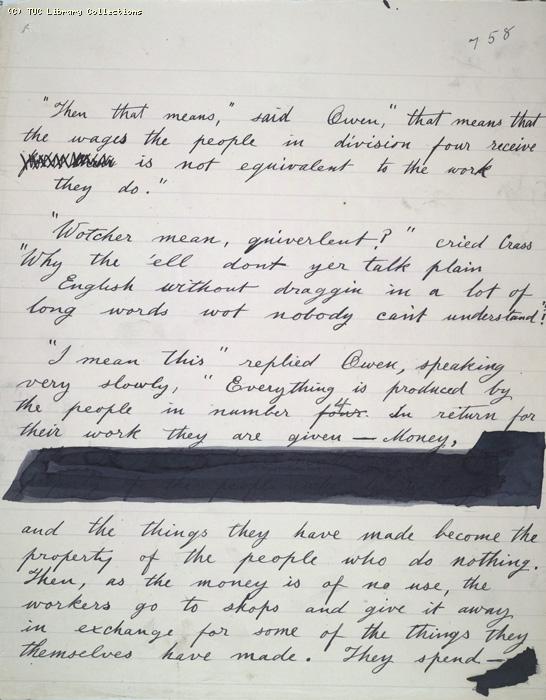 (C) TUC Library Collections
758
"Then that means," said Owen, "that means that
the wages the people in division four receive
is not equivalent to the work
they do."
"Wotcher mean, quiverlent?" cried Crass
"Why the 'ell dont yer talk plain
English without draggin in a lot of
long words wot nobody cant understand?"
"I mean this" replied Owen, speaking
very slowly, "Everything is produced by
the people in number four 4. In return for
their work they are given — Money,
and the things they have made become the
property of the people who do nothing.
Then, as the money is of no use, the
workers go to shops and give it away
in exchange for some of the things they
themselves have made. They spend —